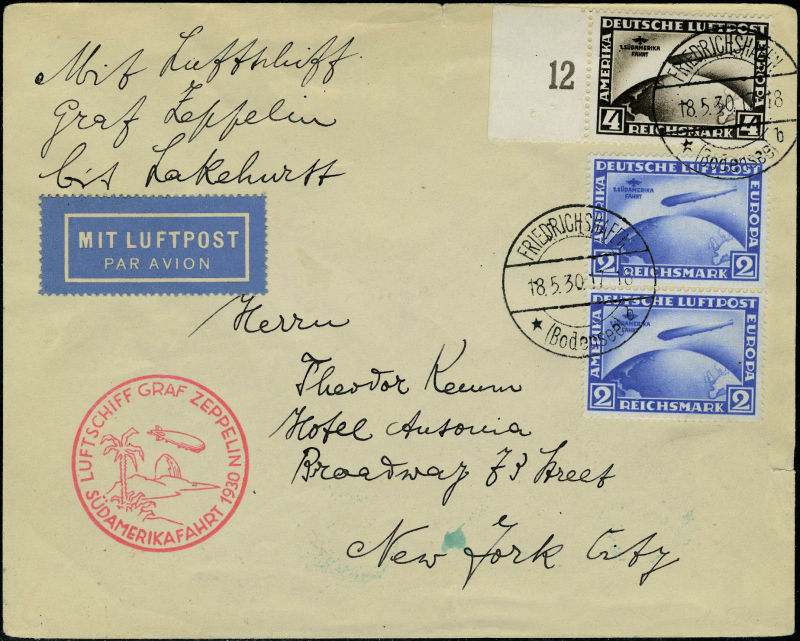 Mit Luftschiff
Graf Zeppelin
bis Lakehurst
MIT LUFTPOST
PAR AVION
12
DEUTSCHE LUFTPOST
AMERIKA
EUROPA
1. SÜDAMERIKA
FAHRT
4 4
REICHSMARK
FRIEDRICHSHAFEN
18.5.30.17-18
★ (Bodensee) b
DEUTSCHE LUFTPOST
AMERIKA
EUROPA
1. SÜDAMERIKA
FAHRT
2 2
REICHSMARK
FRIEDRICHSHAFEN
18.5.30.17-18
★ (Bodensee) b
DEUTSCHE LUFTPOST
AMERIKA
EUROPA
SÜDAMERIKA
FAHRT
2 2
REICHSMARK
Herrn
Theodor
Hotel Ansonia
Broadway 73 Street
New York City
LUFTSCHIFF GRAF ZEPPELIN
SÜDAMERIKAFAHRT 1930